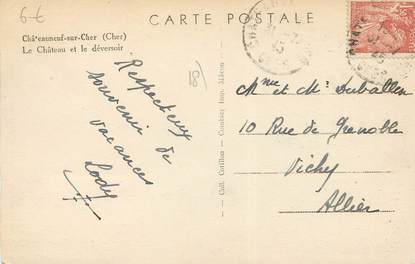 6-€
CARTE POSTALE
Châteauneuf-sur-Cher (Cher)
Le Château et le déversoir
18
Respectueux
souvenir de
vacances
Lody
Coll. Cotillon
Mme et Mr Duballen
10 Rue de Grenoble
Vichy
Allier